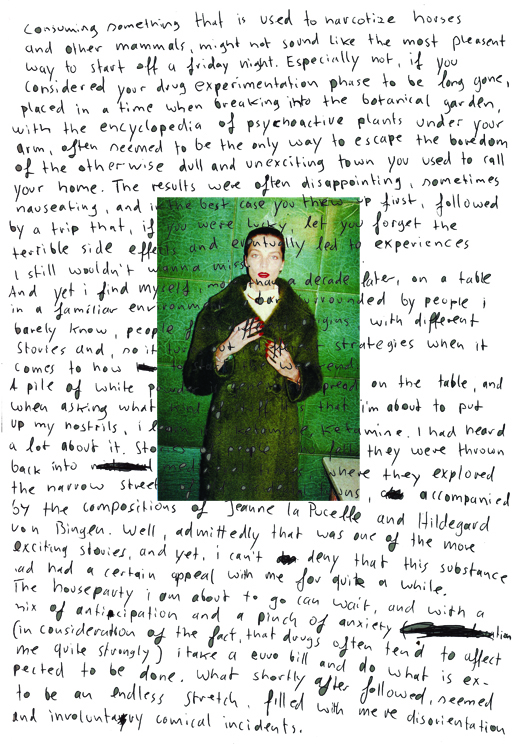 Consuming something that is used to narcotize horses
and other mammals, might not sound like the most pleasent
way to start off a friday night. Especially not, if you
considered your drug experimentation phase to be long gone,
placed in a time when breaking into the botanical garden,
with the encyclopedia of psychoactive plants under your
arm, often seemed to be the only way to escape the boredom
of the otherwise dull and unexciting town you used to call
your home. The results were often disappointing, sometimes
nauseating, and in the best case you threw up first, followed
by a trip that, if you were lucky, let you forget the
terrible side effects and eventually led to experiences
I still wouldn't wanna miss.
And yet i find myself, more than a decade later, on a table
in a familiar surrounded by people i
barely know, people with different
stories and, so it strategies when it
comes to how
A pile of white on the table, and
when asking what that i'm about to put
up my nostrils, i Ketamine. I had heard
a lot about it. they were thrown
back into where they explored
the narrow , accompanied
by the compositions of Jeanne la Pucelle and Hildegard
von Bingen. Well, admittedly that was one of the more
exciting stories, and yet, i can't deny that this substance
had had a certain appeal with me for quite a while.
The houseparty i am about to go can wait, and with a
mix of anticipation and a pinch of anxiety
(in consideration of the fact, that drugs often tend to affect
me quite strongly) i take a euro bill and do what is ex-
pected to be done. What shortly after followed, seemed
to be an endless stretch, filled with mere disorientation
and involuntary comical incidents.